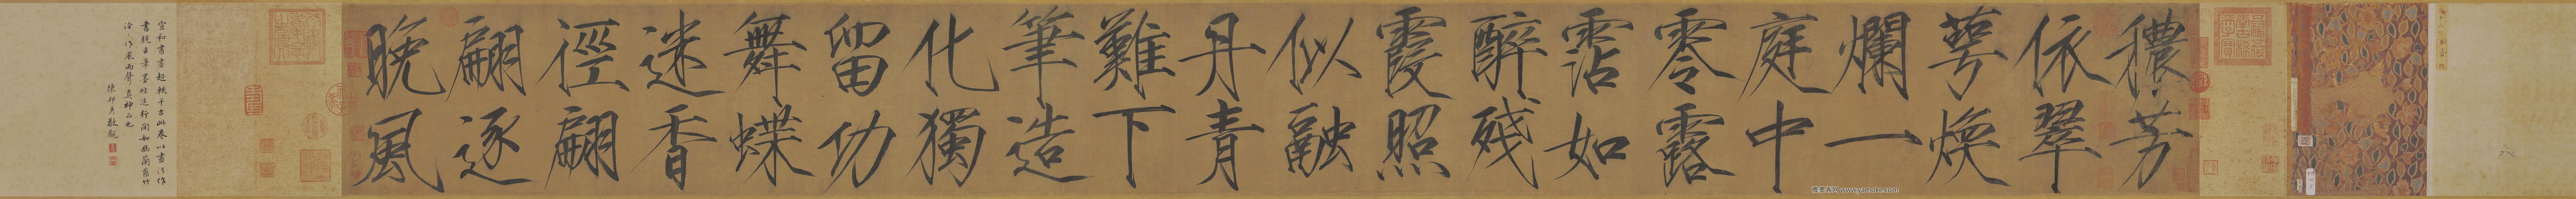 穠芳
依翠
萼煥
爛一
庭中
零露
霑如
醉殘
霞照
似融
丹青
難下
筆造
化獨
留功
舞蝶
迷香
徑翩
翩逐
晚風
宣和書畫超軼千古此卷以書法作
畫脫去筆墨畦逕行間如幽蘭叢竹
泠泠作風雨聲真神品也
陳邦彥敬觀
雅墨客网 www.yamoke.com